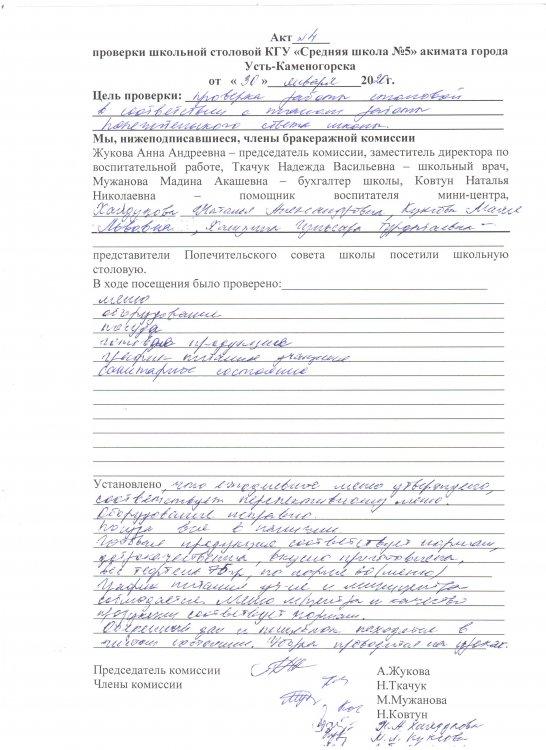 Акт №4
проверки школьной столовой КГУ «Средняя школа №5» акимата города
Усть-Каменогорска
от « 30 » января 2020г.
Цель проверки: проверка работы столовой
в соответствии с планом работы
попечительского совета школы.
Мы, нижеподписавшиеся, члены бракеражной комиссии
Жукова Анна Андреевна – председатель комиссии, заместитель директора по
воспитательной работе, Ткачук Надежда Васильевна – школьный врач,
Мужанова Мадина Акашевна – бухгалтер школы, Ковтун Наталья
Николаевна – помощник воспитателя мини-центра,
Наталья Александровна,
представители Попечительского совета школы посетили школьную
столовую.
В ходе посещения было проверено:
меню
оборудование
посуда
готовая продукция
график питания учащихся
санитарное состояние
Установлено, что ежедневное меню утверждено,
соответствует перспективному меню.
Оборудование исправно.
Посуда вся в наличии.
Готовая продукция соответствует нормам,
доброкачественна, вкусно приготовлена,
вес по норме
График питания уч-ся и миницентра
соблюдается. Меню м/центра и качество
продукции соответствует нормам.
зал и пищеблок находятся в
состоянии. Уборка проводится
Председатель комиссии А.Жукова
Члены комиссии Н.Ткачук
М.Мужанова
Н.Ковтун
Н.А.
М.Л.